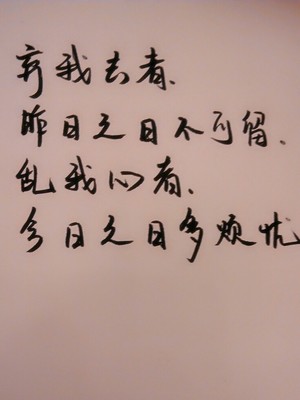 弃我去者、
昨日之日不可留。
乱我心者、
今日之日多烦忧